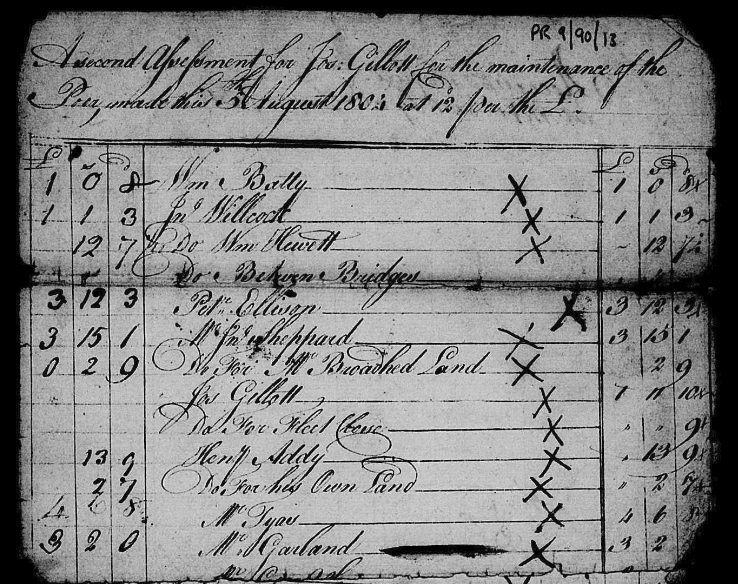 PR 9/90/13
A second Assessment for Jos: Gillott for the maintenance of the
Poor, made this 5th August 1804 at 12d per the £.
£ s d £ s d
1 0 8 Wm Batty X 1 0 8
1 1 3 Jno Willcock X 1 1 3
12 7 Do Wm Hewett X 12 7
Do Betwen Bridges
3 12 3 Petr Ellison X 3 12 3
3 15 1 Mr Jno Sheppard X 3 15 1
0 2 9 Do For Mr Broadhed Land X 2 9
Jos Gillott X 10
Do For Fleet Close X 9
13 9 Heny Addy X 13 9
2 7 Do For his Own Land X 2 7
4 6 8 Mr Tyas X 4 6
3 2 0 Mr Garland X 3 2